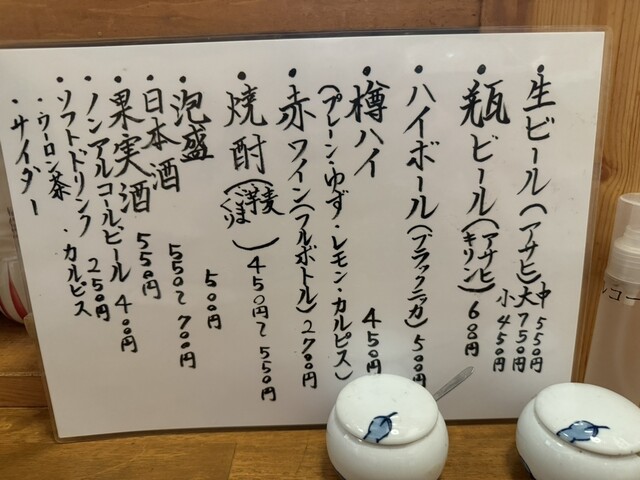 ・生ビール(アサヒ) 中 550円
大 750円
小 450円
・瓶ビール(アサヒ キリン) 600円
・ハイボール(ブラックニッカ) 500円
・樽ハイ 450円
(プレーン・ゆず・レモン・カルピス)
・赤ワイン(フルボトル) 2700円
・焼酎 450円〜550円
・泡盛 500円
・日本酒 550〜700円
・果実酒 550円
・ノンアルコールビール 400円
・ソフトドリンク 250円
・ウーロン茶 ・カルピス
・サイダー